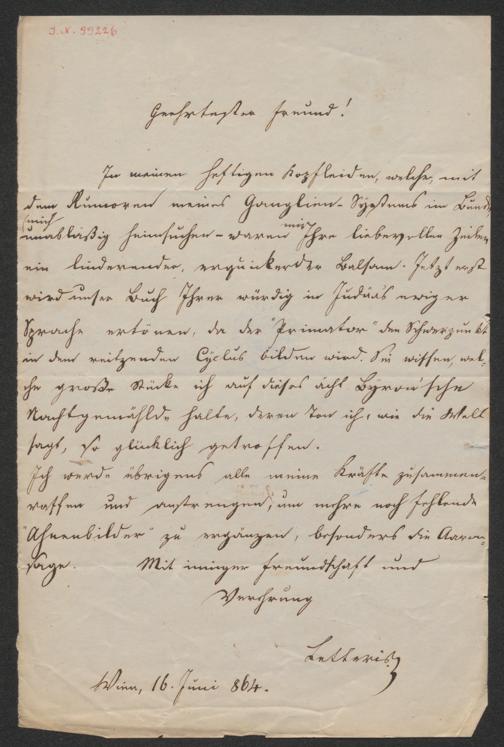 I. N. 99226
Geehrtester Freund!
In meinen heftigen Kopfleiden, welche, mit
dem Rumoren meines Ganglien-Systems im Bunde,
mich
unabläßig heimsuchen – waren mir Ihre liebevollen Zeilen
ein lindernder, erquickender Balsam. Jetzt erst
wird unser Buch Ihrer würdig in Judäa's ewiger
Sprache ertönen, da der "Primator" den Schwerpunkt
in dem reitzenden Cyclus bilden wird. Sie wissen, wel-
che große Stücke ich auf dieses ächt Byron'sche
Nachtgemählde halte, deren Ton ich, wie die Welt
sagt, so glücklich getroffen.
Ich werde übrigens alle meine Kräfte zusammen-
raffen und anstrengen, um mehre noch fehlende
"Ahnenbilder" zu ergänzen, besonders die
sage. Mit inniger Freundschaft und
Verehrung
Letteris
Wien, 16. Juni 864.